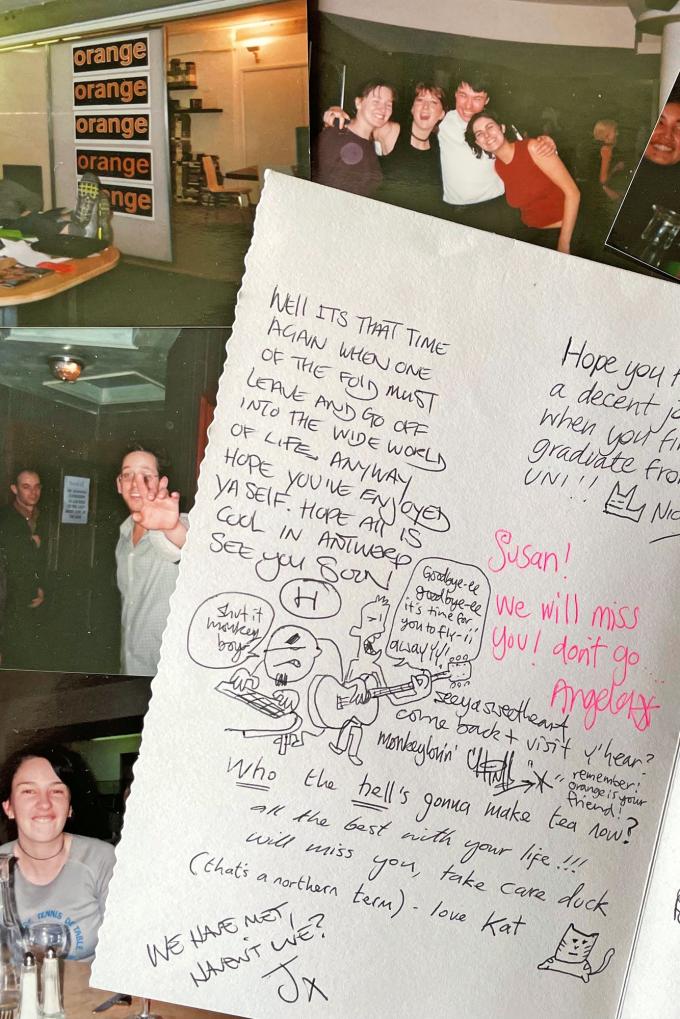 orange
orange
orange
orange
ange
WELL ITS THAT TIME
AGAIN WHEN ONE
OF THE FOLD MUST
LEAVE AND GO OFF
INTO THE WIDE WORLD
OF LIFE, ANYWAY
HOPE YOU'VE ENJOYED
YA SELF. HOPE All IS
COOL IN ANTWERP
SEE YOU SOON!
H
Shut it
monkey
boy
Goodbye-ee
goodbye-ee
it's time for
you to fly-ii
away!!!
Hope you
a decent
when you
graduate
UNI!!
Susan!
We will miss
you! don't go...
Angela
seeya sweetheart,
come back + visit y'hear?
monkeylovin'
"X"
remember!
orange is your
friend!
Who the hell's gonna make tea now?
all the best with your life!!!
will miss you, take care duck
(that's a northern term) - love Kat
WE HAVE MET,
HAVEN'T WE?
Jx
TENNIS DE TABLE